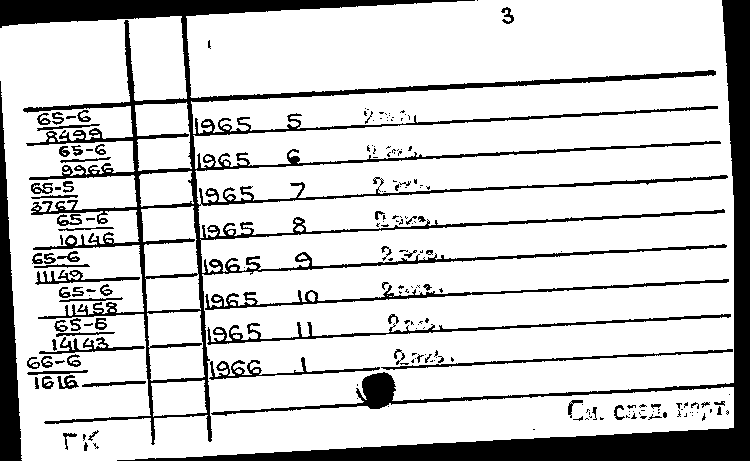 3
65-6
8499 1965 5 2 экз.
65-6
9966 1965 6 2 экз.
65-5
3767 1965 7 2 экз.
65-6
10146 1965 8 2 экз.
65-6
11149 1965 9 2 экз.
65-6
11458 1965 10 2 экз.
65-6
14143 1965 11 2 экз.
66-6
1616 1966 1 2 экз.
См. след. карт.
ГК